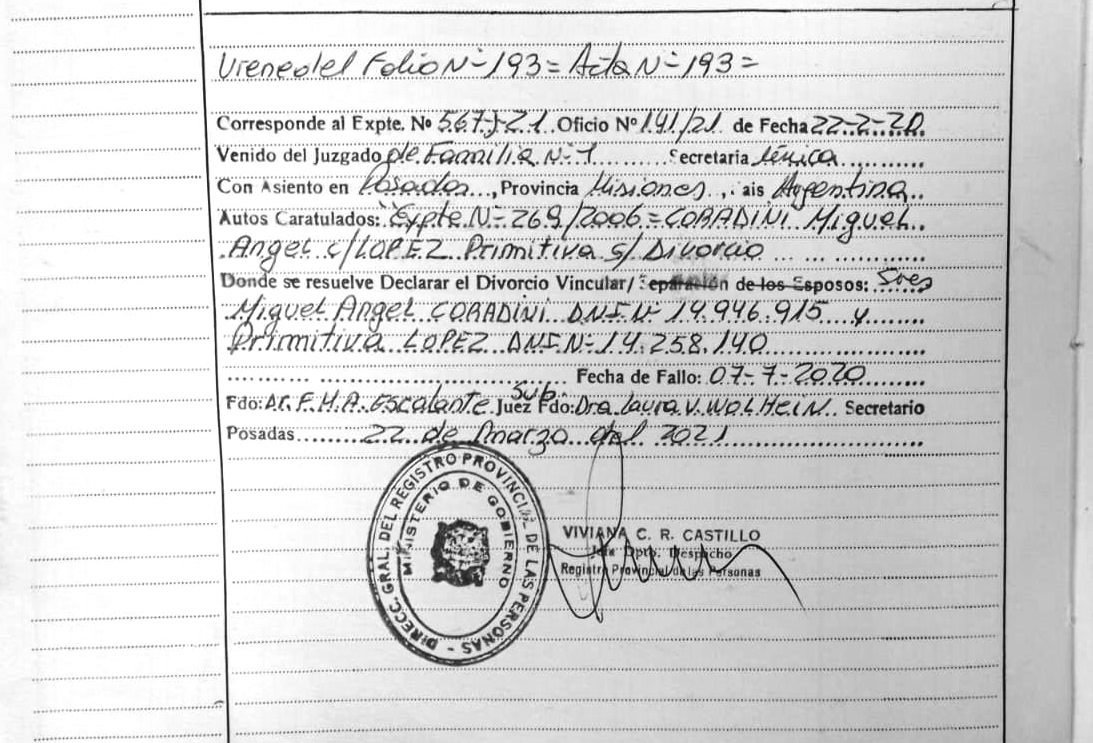 Viene del Folio Nº 193= Acta Nº 193=
Corresponde al Expte. Nº 567-J-21 Oficio Nº 141/21 de Fecha 22-2-20
Venido del Juzgado de Familia Nº 1 Secretaria Única
Con Asiento en Posadas, Provincia Misiones, ais Argentina
Autos Caratulados: "Expte Nº 269/2006= CORADINI Miguel
Angel c/LOPEZ Primitiva s/Divorcio
Donde se resuelve Declarar el Divorcio Vincular/Separación de los Esposos: Sres
Miguel Angel CORADINI DNI Nº 14.946.915 y
Primitiva LOPEZ DNI Nº 14.258.140
Fecha de Fallo: 07-7-2020
Fdo: Dr. F.H.A. Escalante Juez Sub. Fdo: Dra. Laura V. WOLHEIN. Secretario
Posadas 22 de Marzo del 2021
DIRECC. GRAL. DEL REGISTRO PROVINCIAL DE LAS PERSONAS -
MINISTERIO DE GOBIERNO
VIVIANA C. R. CASTILLO
Jefa Dpto. Despacho
Registro Provincial de las Personas